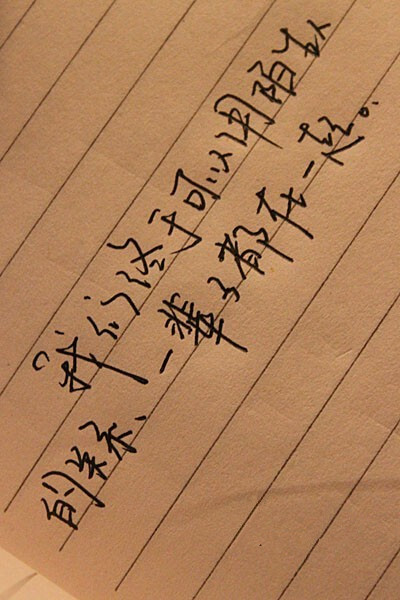 我们终于可以用陌生人
的关系、一辈子都在一起。